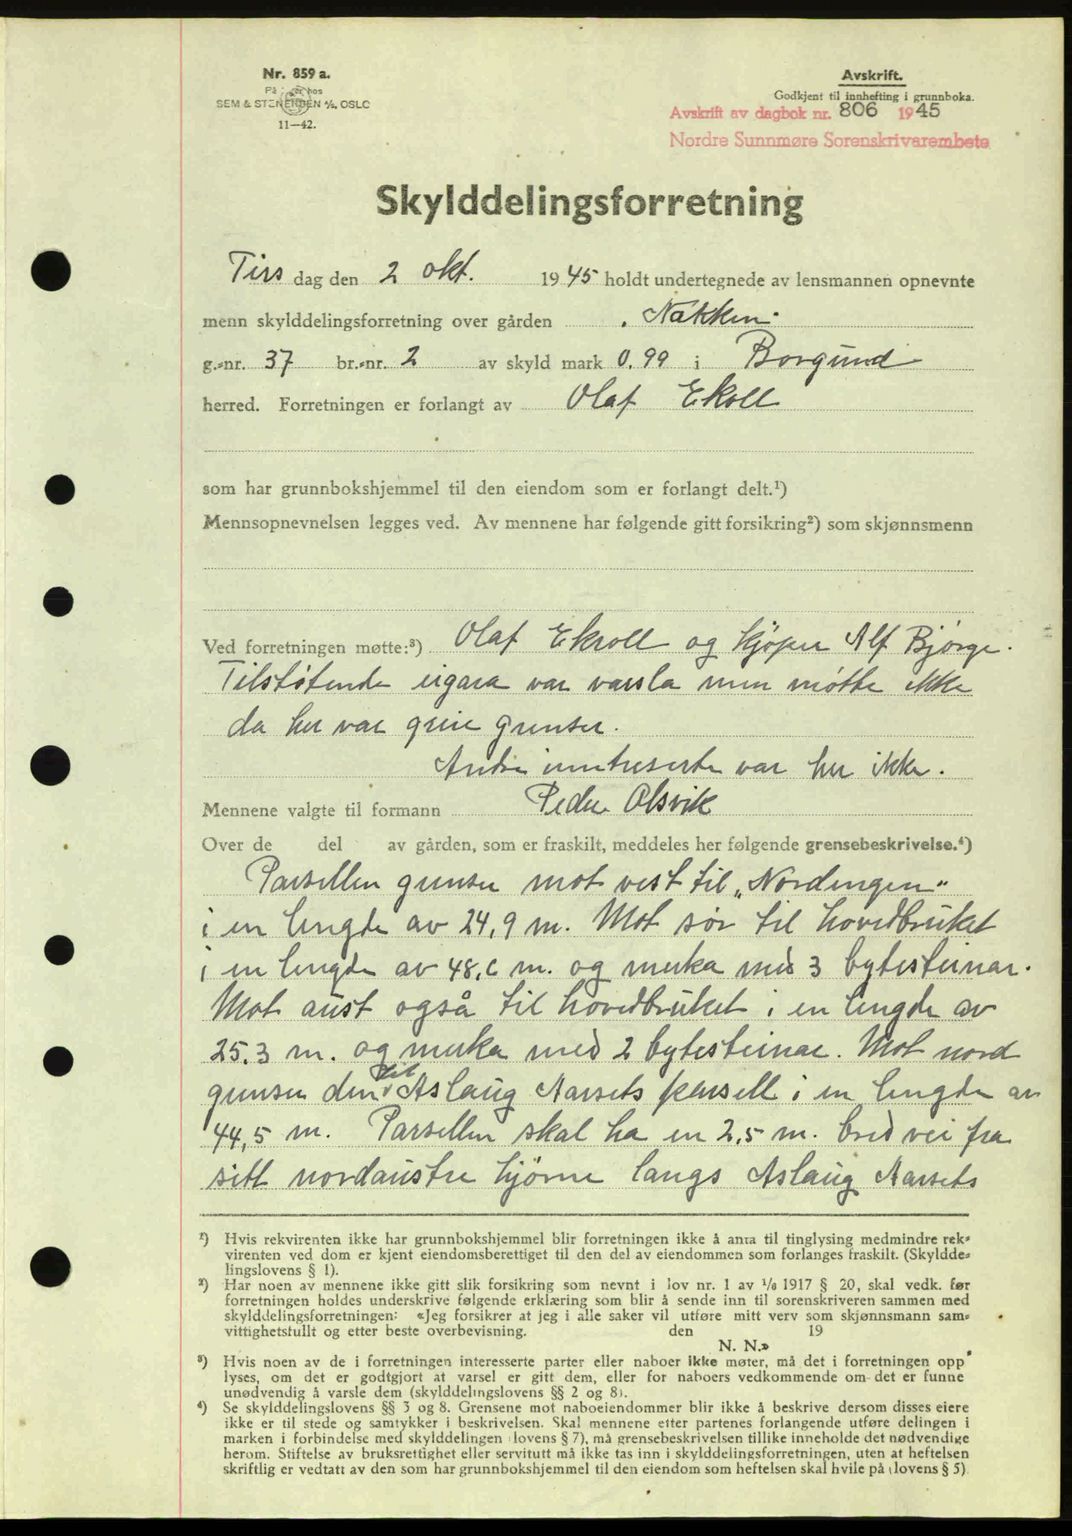 Nr. 859 a.
SEM & STENERSEN A/S, OSLO
11—42.
Avskrift.
Godkjent til innhefting i grunnboka.
Avskrift av dagbok nr. 806 1945
Nordre Sunnmøre Sorenskrivarembete
Skylddelingsforretning
Tirs dag den 2 okt. 1945 holdt undertegnede av lensmannen opnevnte
menn skylddelingsforretning over gården Nakken
g.-nr. 37 br.-nr. 2 av skyld mark 0.99 i Borgund
herred. Forretningen er forlangt av Olaf Ekroll
som har grunnbokshjemmel til den eiendom som er forlangt delt.¹)
Mennsopnevnelsen legges ved. Av mennene har følgende gitt forsikring²) som skjønnsmenn
Ved forretningen møtte:³) Olaf Ekroll og kjøper Alf Bjørge.
Tilstøtende eigara var varsla men møtte ikke
da her var greie grenser.
Andre interesserte var her ikke.
Mennene valgte til formann Peder Alsvik
Over de del av gården, som er fraskilt, meddeles her følgende grensebeskrivelse.⁴)
Parsellen grenser mot vest til „Nordengen"
i en lengde av 24,9 m. Mot sør til hovedbruket
i en lengde av 48,6 m. og merka med 3 bytesteinar.
Mot aust også til hovedbruket i en lengde av
25.3 m. og merka med 2 bytesteinar. Mot nord
grenser den til Aslaug Aarsets parsell i en lengde av
44,5 m. Parsellen skal ha en 2,5 m. bred vei fra
sitt nordaustre hjørne langs Aslaug Aarsets
¹) Hvis rekvirenten ikke har grunnbokshjemmel blir forretningen ikke å anta til tinglysing medmindre rek-
virenten ved dom er kjent eiendomsberettiget til den del av eiendommen som forlanges fraskilt. (Skyldde-
lingslovens § 1).
²) Har noen av mennene ikke gitt slik forsikring som nevnt i lov nr. 1 av 1/6 1917 § 20, skal vedk. før
forretningen holdes underskrive følgende erklæring som blir å sende inn til sorenskriveren sammen med
skylddelingsforretningen: «Jeg forsikrer at jeg i alle saker vil utføre mitt verv som skjønnsmann sam-
vittighetsfullt og etter beste overbevisning. den 19
N. N.»
³) Hvis noen av de i forretningen interesserte parter eller naboer ikke møter, må det i forretningen opp
lyses, om det er godtgjort at varsel er gitt dem, eller for naboers vedkommende om det er funne
unødvendig å varsle dem (skylddelingslovens §§ 2 og 8).
⁴) Se skylddelingslovens §§ 3 og 8. Grensene mot naboeiendommer blir ikke å beskrive dersom disses eiere
ikke er til stede og samtykker i beskrivelsen. Skal mennene etter partenes forlangende utføre delingen i
marken i forbindelse med skylddelingen (lovens § 7), må grensebeskrivelsen tillike inneholde det nødvendige
herom. Stiftelse av bruksrettighet eller servitutt må ikke tas inn i skylddelingsforretningen, uten at heftelsen
skriftlig er vedtatt av den som har grunnbokshjemmel til den eiendom som heftelsen skal hvile på (lovens § 5).